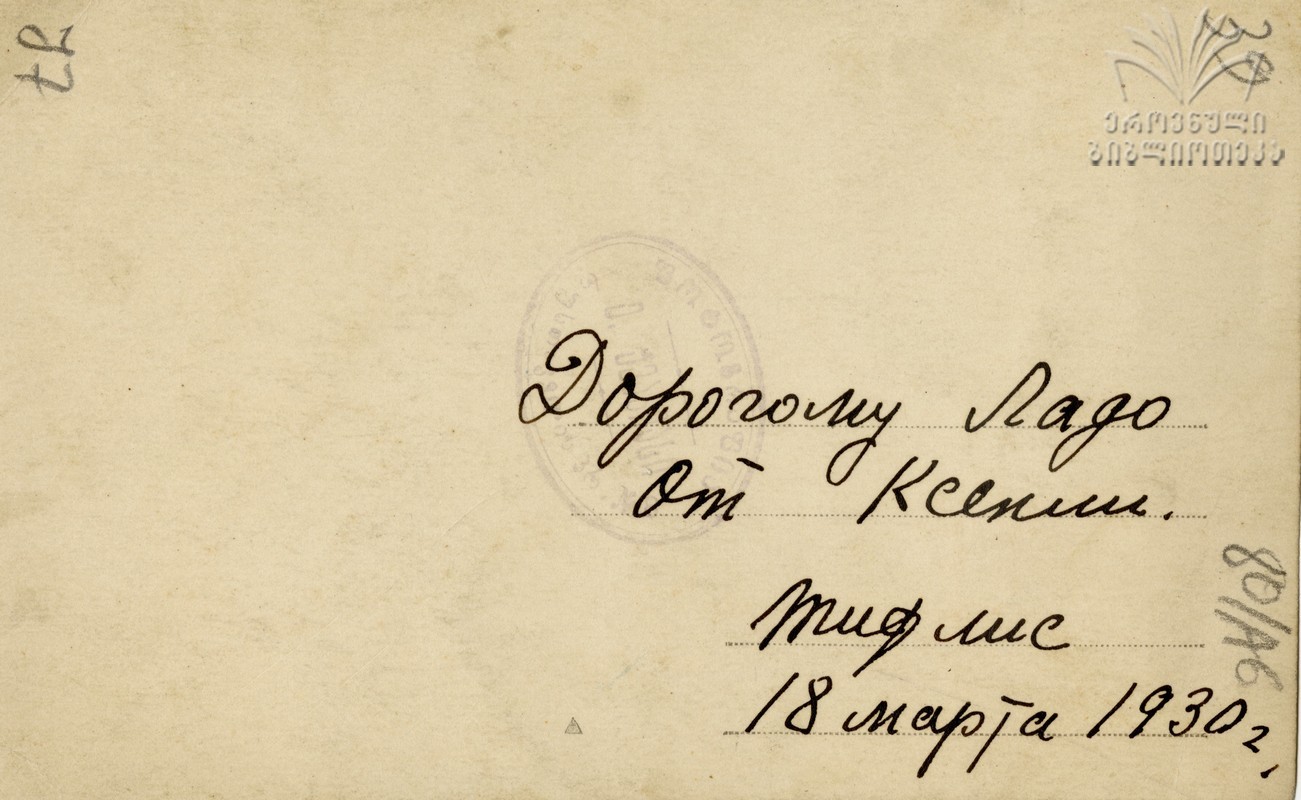 27
ეროვნული
ბიბლიოთეკა
Дорогому Ладо
От Ксении.
Тифлис
18 марта 1930 г.